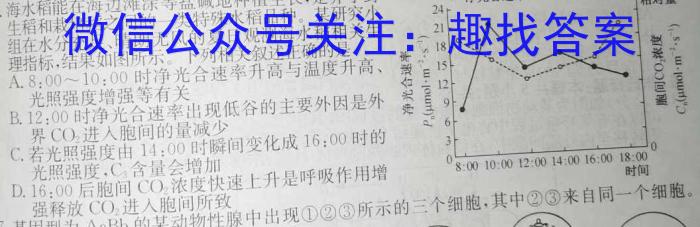 海水稻能在海边滩涂等盐碱地种植生长
微信公众号关注：趣找答案
理指标,结果如图所示。
A. 8:00～10:00 时净光合速率升高与温度升高、
光照强度增强等有关
B. 12:00 时净光合速率出现低谷的主要外因是外
界 CO₂ 进入胞间的量减少
C. 若光照强度由 14:00 时瞬间变化成 16:00 时的
光照强度, C₃ 含量会增加
D. 16:00 后胞间 CO₂ 浓度快速上升是呼吸作用增
强释放 CO₂ 进入胞间所致
净光合速率
Pₙ(μmol·m⁻²·s⁻¹)
24
21
18
15
12
9
6
3
0
8:00 10:00 12:00 14:00 16:00 18:00
时间
胞间CO₂浓度
0
的某动物性腺中出现①②③所示的三个细胞,其中②③来自同一个细胞。